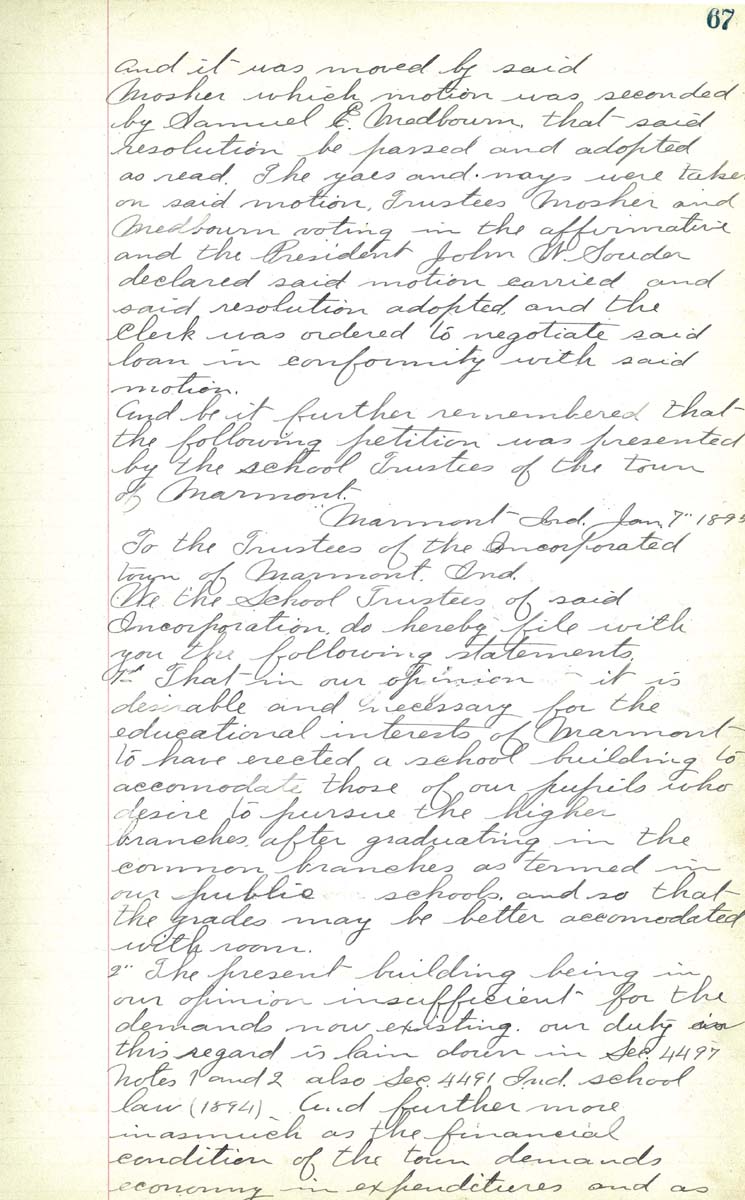 67
and it was moved by said
Mosher which motion was seconded
by Samuel E. Medbourn, that said
resolution be passed and adopted
as read. The yaes and nays were taken
on said motion, Trustees Mosher and
Medbourn voting in the affirmative
and the President John W Souder
declared said motion carried and
said resolution adopted and the
Clerk was ordered to negotiate said
loan in conformity with said
motion.
And be it further remembered that
the following petition was presented
by the school Trustees of the town
of Marmont.
Marmont Ind. Jan. 7" 1895
To the Trustees of the Incorporated
town of Marmont. Ind.
We the School Trustees of said
Incorporation, do hereby file with
you the following statements.
1st That in our opinion it is
desirable and necessary for the
educational interests of Marmont
to have erected a school building to
accomodate those of our pupils who
desire to pursue the higher
branches after graduating in the
common branches as termed in
our public schools, and so that
the grades may be better accomodated
with room.
2" The present building being in
our opinion insufficient for the
demands now existing. our duty in
this regard is lain down in Sec. 4497
Notes 1 and 2 also Sec. 4491 Ind. school
law (1894) And further more
inasmuch as the financial
condition of the town demands
economy in expenditures and as